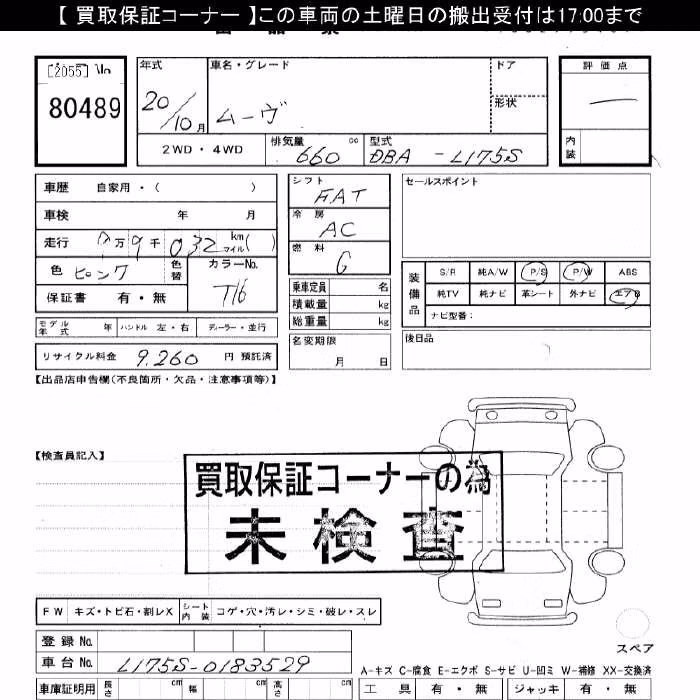 【 買取保証コーナー 】この車両の土曜日の搬出受付は17:00まで
[2055] No
80489
年式 車名・グレード ドア 評価点
20/10月 ムーヴ 形状 —
2WD・4WD 排気量 660 cc 型式 DBA - L175S 内装
車歴 自家用・( ) シフト FAT セールスポイント
車検 年 月 冷房 AC
走行 万 9千 032 km マイル ( ) 燃料 G
色 ピンク 色替 カラーNo. T16
保証書 有・無 乗車定員 名
装備品 S/R 純A/W P/S P/W ABS
純TV 純ナビ 革シート 外ナビ エアB
積載量 kg ナビ型番:
総重量 kg
モデル年式 年 ハンドル 左・右 ディーラー・並行 名変期限 月 日 後日品
リサイクル料金 9.260 円 預託済
【出品店申告欄(不良箇所・欠品・注意事項等)】
【検査員記入】
買取保証コーナーの為
未検査
FW キズ・トビ石・割レX シート内装 コゲ・穴・汚レ・シミ・破レ・スレ
スペア
登録 No.
車台 No. L175S-0183529
A-キズ C-腐食 E-エクボ S-サビ U-凹ミ W-補修 XX-交換済
車庫証明用 長さ cm 幅 cm 高さ cm 工具 有・無 ジャッキ 有・無